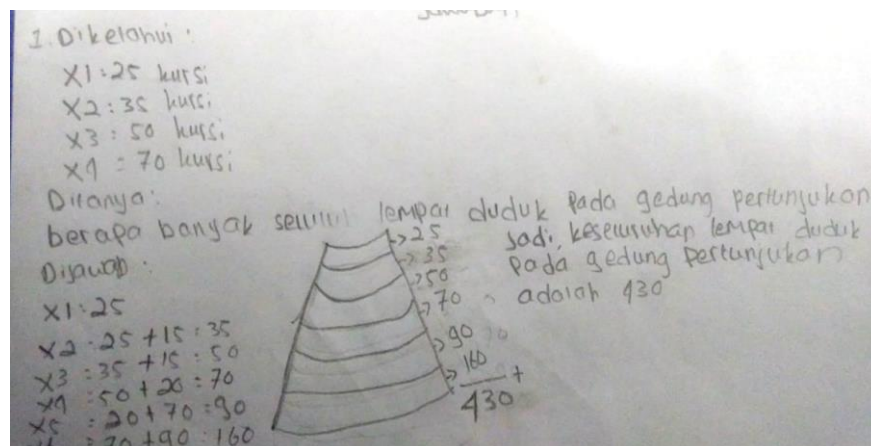 1. Diketahui :
X1 : 25 kursi
X2 : 35 kursi
X3 : 50 kursi
X4 : 70 kursi
Ditanya :
berapa banyak tempat duduk pada gedung pertunjukan
Dijawab :
X1 : 25
X2 : 25 + 15 : 35
X3 : 35 + 15 : 50
X4 : 50 + 20 : 70
X5 : 20 + 70 : 90
: 70 + 90 : 160
25
35
50
70
90
160 +
430
Jadi, keseluruhan tempat duduk
pada gedung pertunjukan
adalah 430